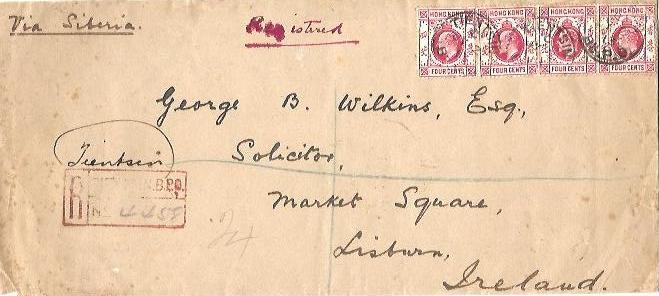 Via Siberia.
Registered
HONG KONG HONG KONG HONG KONG HONG KONG
FOUR CENTS FOUR CENTS FOUR CENTS FOUR CENTS
George B. Wilkins, Esq,
Tientsin
Solicitor,
R
B.P.O.
Market Square,
Lisburn,
Ireland.